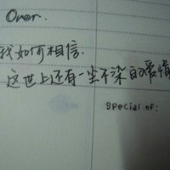 Over.
我如何相信.
这世上还有一尘不染的爱情
special of: